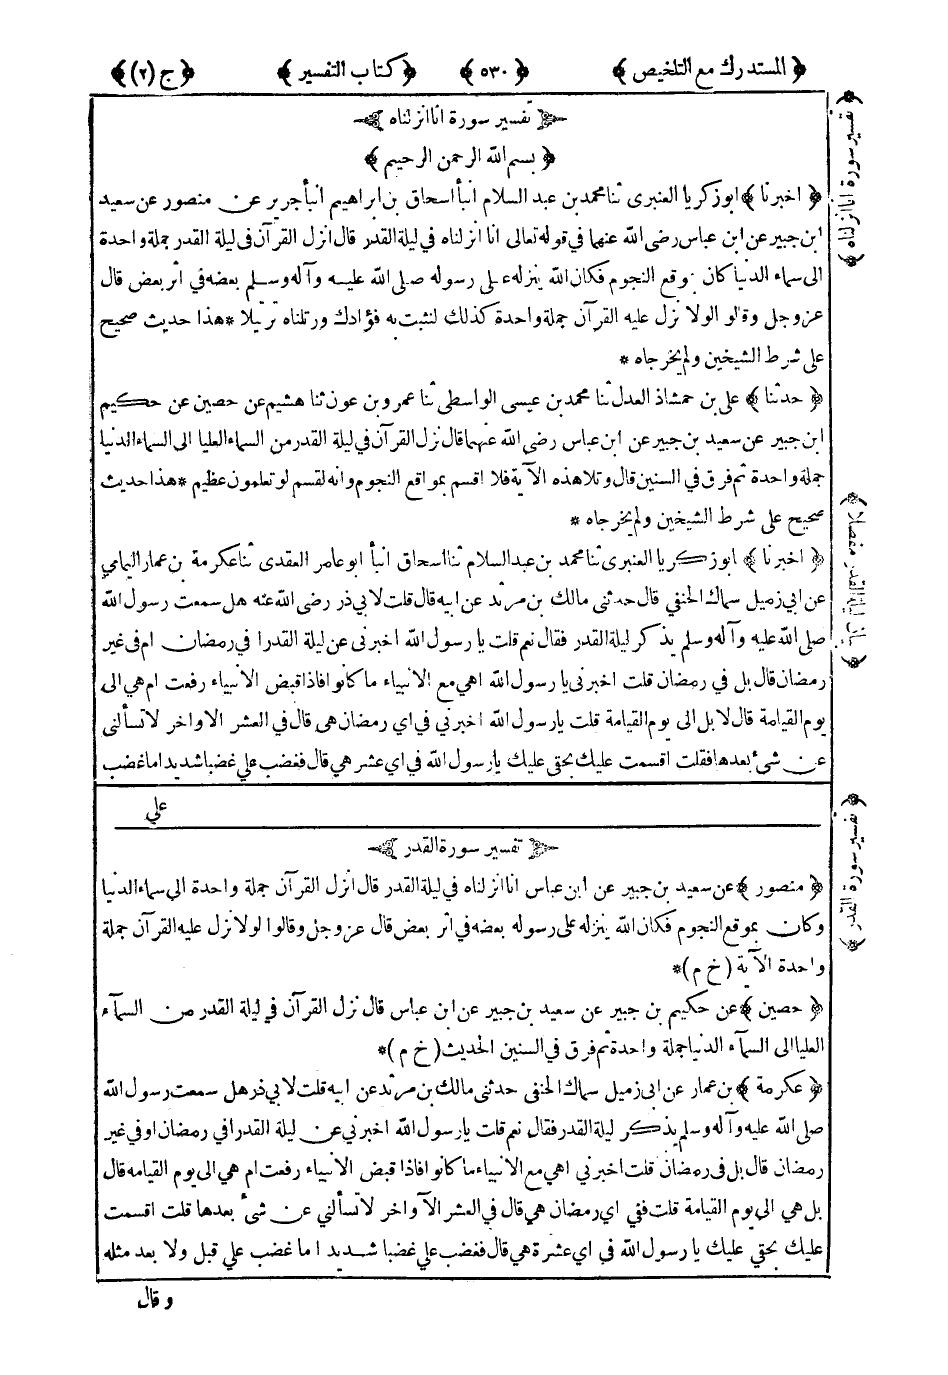 ﴿ المستدرك مع التلخيص ﴾ ﴿ ٥٣٠ ﴾ ﴿ كتاب التفسير ﴾ ﴿ ج (٢) ﴾
تفسير سورة انا انزلناه
﴿ بسم الله الرحمن الرحيم ﴾
﴿ اخبرنا ﴾ ابو زكريا العنبرى ثنا محمد بن عبد السلام انبأ اسحاق بن ابراهيم انبأ جرير عن منصور عن سعيد
ابن جبير عن ابن عباس رضى الله عنهما في قوله تعالى انا انزلناه في ليلة القدر قال انزل القرآن في ليلة القدر جملة واحدة
الى سماء الدنيا كان بموقع النجوم فكان الله ينزله على رسوله صلى الله عليه وآله وسلم بعضه في اثر بعض قال
عز وجل وقالوا لولا نزل عليه القرآن جملة واحدة كذلك لنثبت به فؤادك ورتلناه ترتيلا * هذا حديث صحيح
على شرط الشيخين ولم يخرجاه *
﴿ حدثنا ﴾ على بن حمشاذ العدل ثنا محمد بن عيسى الواسطى ثنا عمرو بن عون ثنا هشيم عن حصين عن حكيم
ابن جبير عن سعيد بن جبير عن ابن عباس رضى الله عنهما قال نزل القرآن في ليلة القدر من السماء العليا الى السماء الدنيا
جملة واحدة ثم فرق في السنين قال وتلا هذه الآية فلا اقسم بمواقع النجوم وانه لقسم لو تعلمون عظيم * هذا حديث
صحيح على شرط الشيخين ولم يخرجاه *
﴿ اخبرنا ﴾ ابو زكريا العنبرى ثنا محمد بن عبد السلام ثنا اسحاق انبأ ابو عامر العقدى ثنا عكرمة بن عمار اليمامي
عن ابي زميل سماك الحنفي قال حدثنى مالك بن مرثد عن ابيه قال قلت لابي ذر رضى الله عنه هل سمعت رسول الله
صلى الله عليه وآله وسلم يذكر ليلة القدر فقال نعم قلت يا رسول الله اخبرنى عن ليلة القدر ا في رمضان ام في غير
رمضان قال بل في رمضان قلت اخبرنى يا رسول الله اهي مع الانبياء ما كانوا فاذا قبض الانبياء رفعت ام هي الى
يوم القيامة قال لا بل الى يوم القيامة قلت يا رسول الله اخبرنى في اي رمضان هى قال في العشر الاواخر لا تسألنى
عن شئ بعدها فقلت اقسمت عليك بحقى عليك يا رسول الله في اي عشر هي قال فغضب علي غضبا شديدا ما غضب
علي
تفسير سورة القدر
﴿ منصور ﴾ عن سعيد بن جبير عن ابن عباس انا انزلناه في ليلة القدر قال انزل القرآن جملة واحدة الى سماء الدنيا
وكان بموقع النجوم فكان الله ينزله على رسوله بعضه في اثر بعض قال عز وجل وقالوا لولا نزل عليه القرآن جملة
واحدة الآية (خ م) *
﴿ حصين ﴾ عن حكيم بن جبير عن سعيد بن جبير عن ابن عباس قال نزل القرآن في ليلة القدر من السمآء
العليا الى السمآء الدنيا جملة واحدة ثم فرق في السنين الحديث (خ م) *
﴿ عكرمة ﴾ بن عمار عن ابى زميل سماك الحنفى حدثنى مالك بن مرثد عن ابيه قلت لابي ذر هل سمعت رسول الله
صلى الله عليه وآله وسلم يذكر ليلة القدر فقال نعم قلت يا رسول الله اخبرني عن ليلة القدر ا في رمضان او في غير
رمضان قال بل فى رمضان قلت اخبرنى اهي مع الانبياء ما كانوا فاذا قبض الانبياء رفعت ام هي الى يوم القيامه قال
بل هي الى يوم القيامة قلت ففي اي رمضان هي قال في العشر الآواخر لا تسألني عن شئ بعدها قلت اقسمت
عليك بحقي عليك يا رسول الله في اي عشرة هي قال فغضب علي غضبا شديدا ما غضب علي قبل ولا بعد مثله
وقال
﴿ تفسير سورة انا انزلناه ﴾
﴿ بيان ليلة القدر مفصلا ﴾
﴿ تفسير سورة القدر ﴾